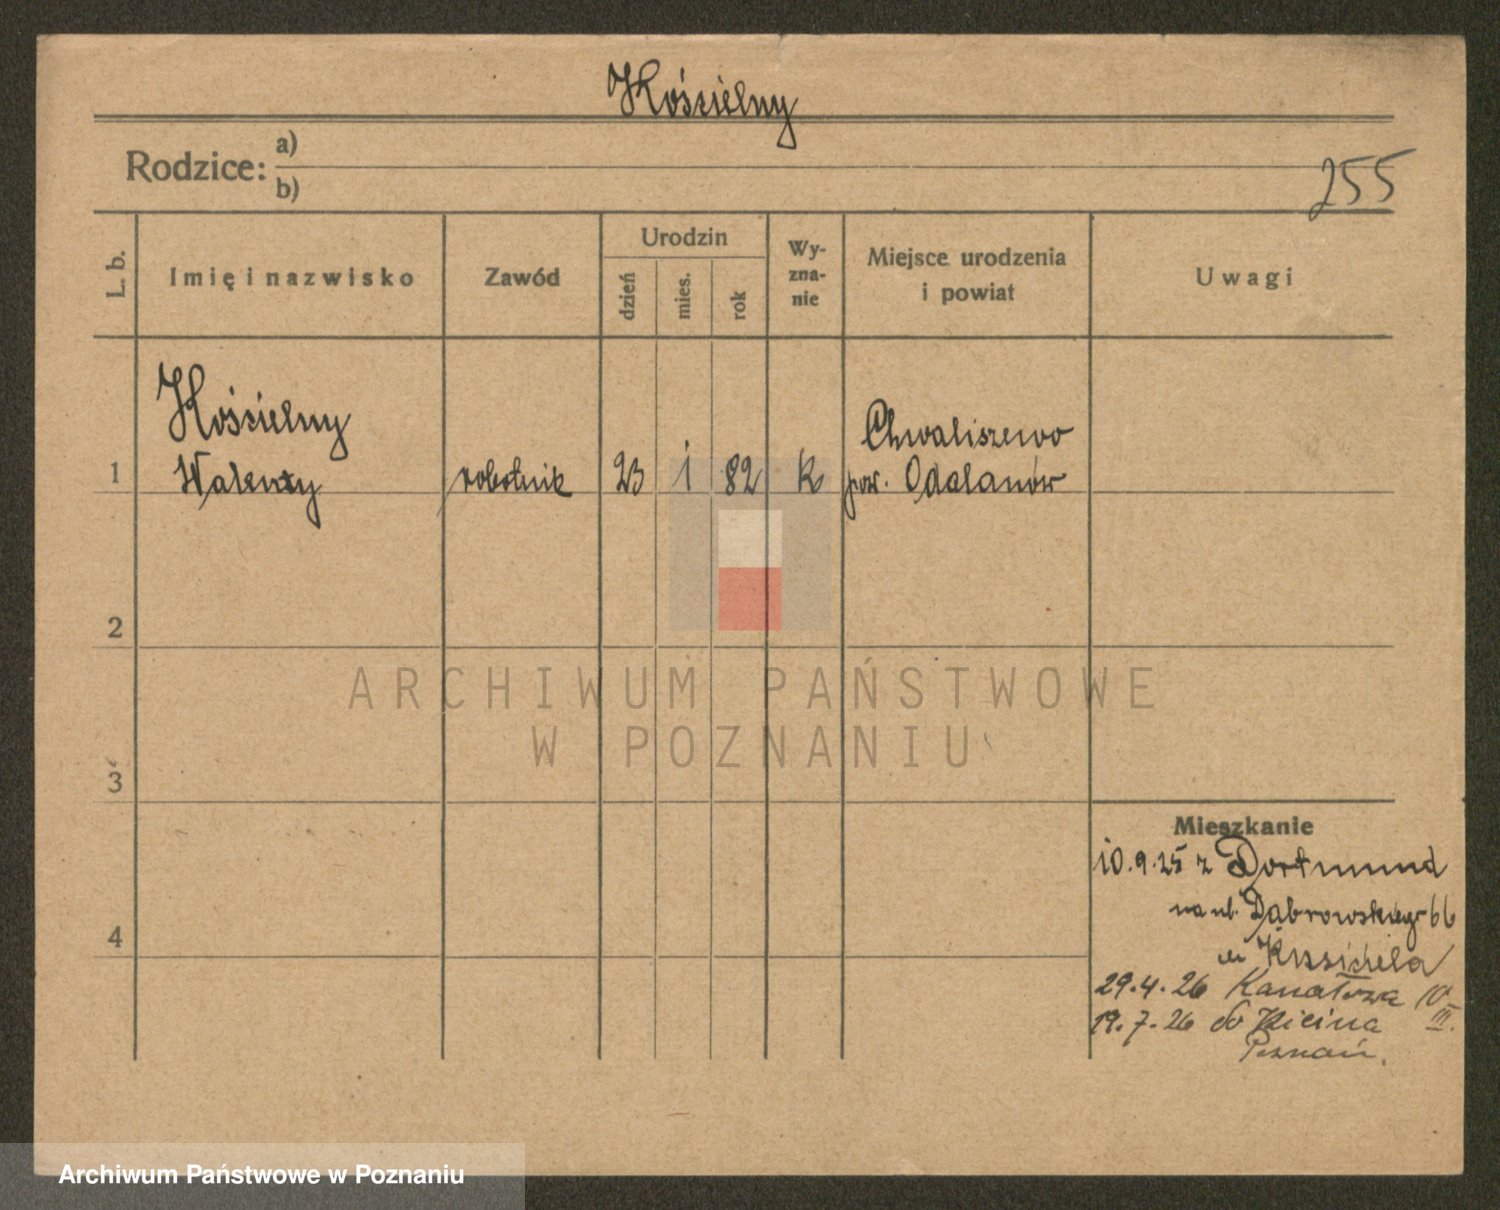 Kościelny
Rodzice: a)
b)
255
L. b.
Imię i nazwisko
Zawód
Urodzin
dzień
mies.
rok
Wy-
zna-
nie
Miejsce urodzenia
i powiat
Uwagi
Kościelny
Chwaliszewo
1 Walenty robotnik 23 1 82 k pow. Odalanów
2
ARCHIWUM PAŃSTWOWE
W POZNANIU
3
Mieszkanie
10.9.25 z Dortmund
na ul. Dąbrowskiego 66
4
29.4.26 Kanałowa 10
III.
19.7.26 do Kicina
Poznań.
Archiwum Państwowe w Poznaniu